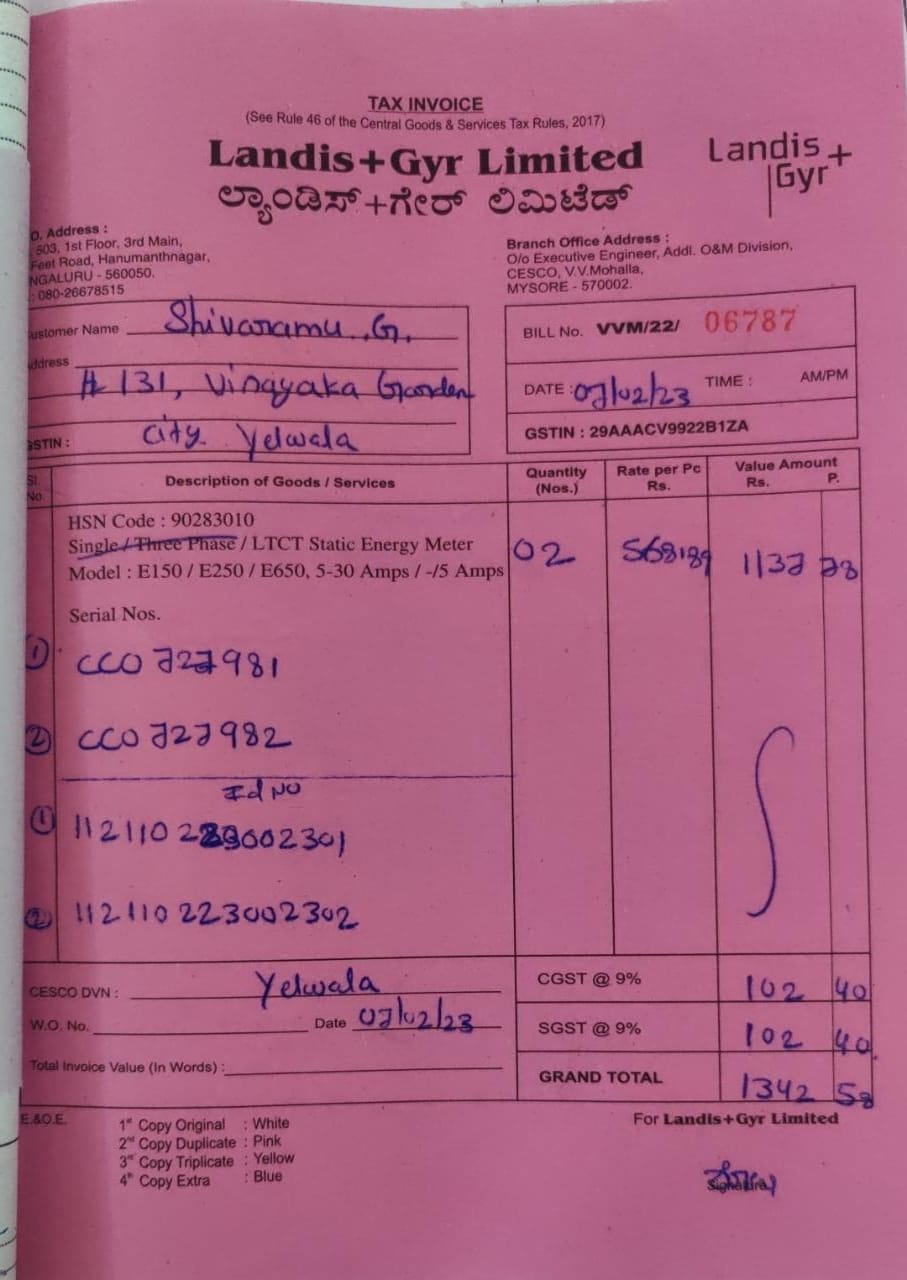 TAX INVOICE
(See Rule 46 of the Central Goods & Services Tax Rules, 2017)
Landis+Gyr Limited
Landis+
Gyr
ಲ್ಯಾಂಡಿಸ್+ಗೇರ್ ಲಿಮಿಟೆಡ್
O. Address :
503, 1st Floor, 3rd Main,
Feet Road, Hanumanthnagar,
NGALURU - 560050.
: 080-26678515
Branch Office Address :
O/o Executive Engineer, Addl. O&M Division,
CESCO, V.V.Mohalla,
MYSORE - 570002.
ustomer Name Shivaramu .G.
ddress # 131, Vinayaka Garden
City Yelwala
GSTIN :
BILL No. VVM/22/ 06787
DATE : 07/02/23 TIME : AM/PM
GSTIN : 29AAACV9922B1ZA
Sl. No. Description of Goods / Services Quantity (Nos.) Rate per Pc Rs. Value Amount Rs. P.
HSN Code : 90283010
Single / Three Phase / LTCT Static Energy Meter 02 568189 1137 78
Model : E150 / E250 / E650, 5-30 Amps / -/5 Amps
Serial Nos.
1 CCO 727981
2 CCO 727982
Id No
1 1121102 3002301
2 112110 223002302
CESCO DVN : Yelwala
W.O. No. Date 07/02/23
Total Invoice Value (In Words) :
CGST @ 9% 102 40
SGST @ 9% 102 40
GRAND TOTAL 1342 58
E.&O.E.
1st Copy Original : White
2nd Copy Duplicate : Pink
3rd Copy Triplicate : Yellow
4th Copy Extra : Blue
For Landis+Gyr Limited